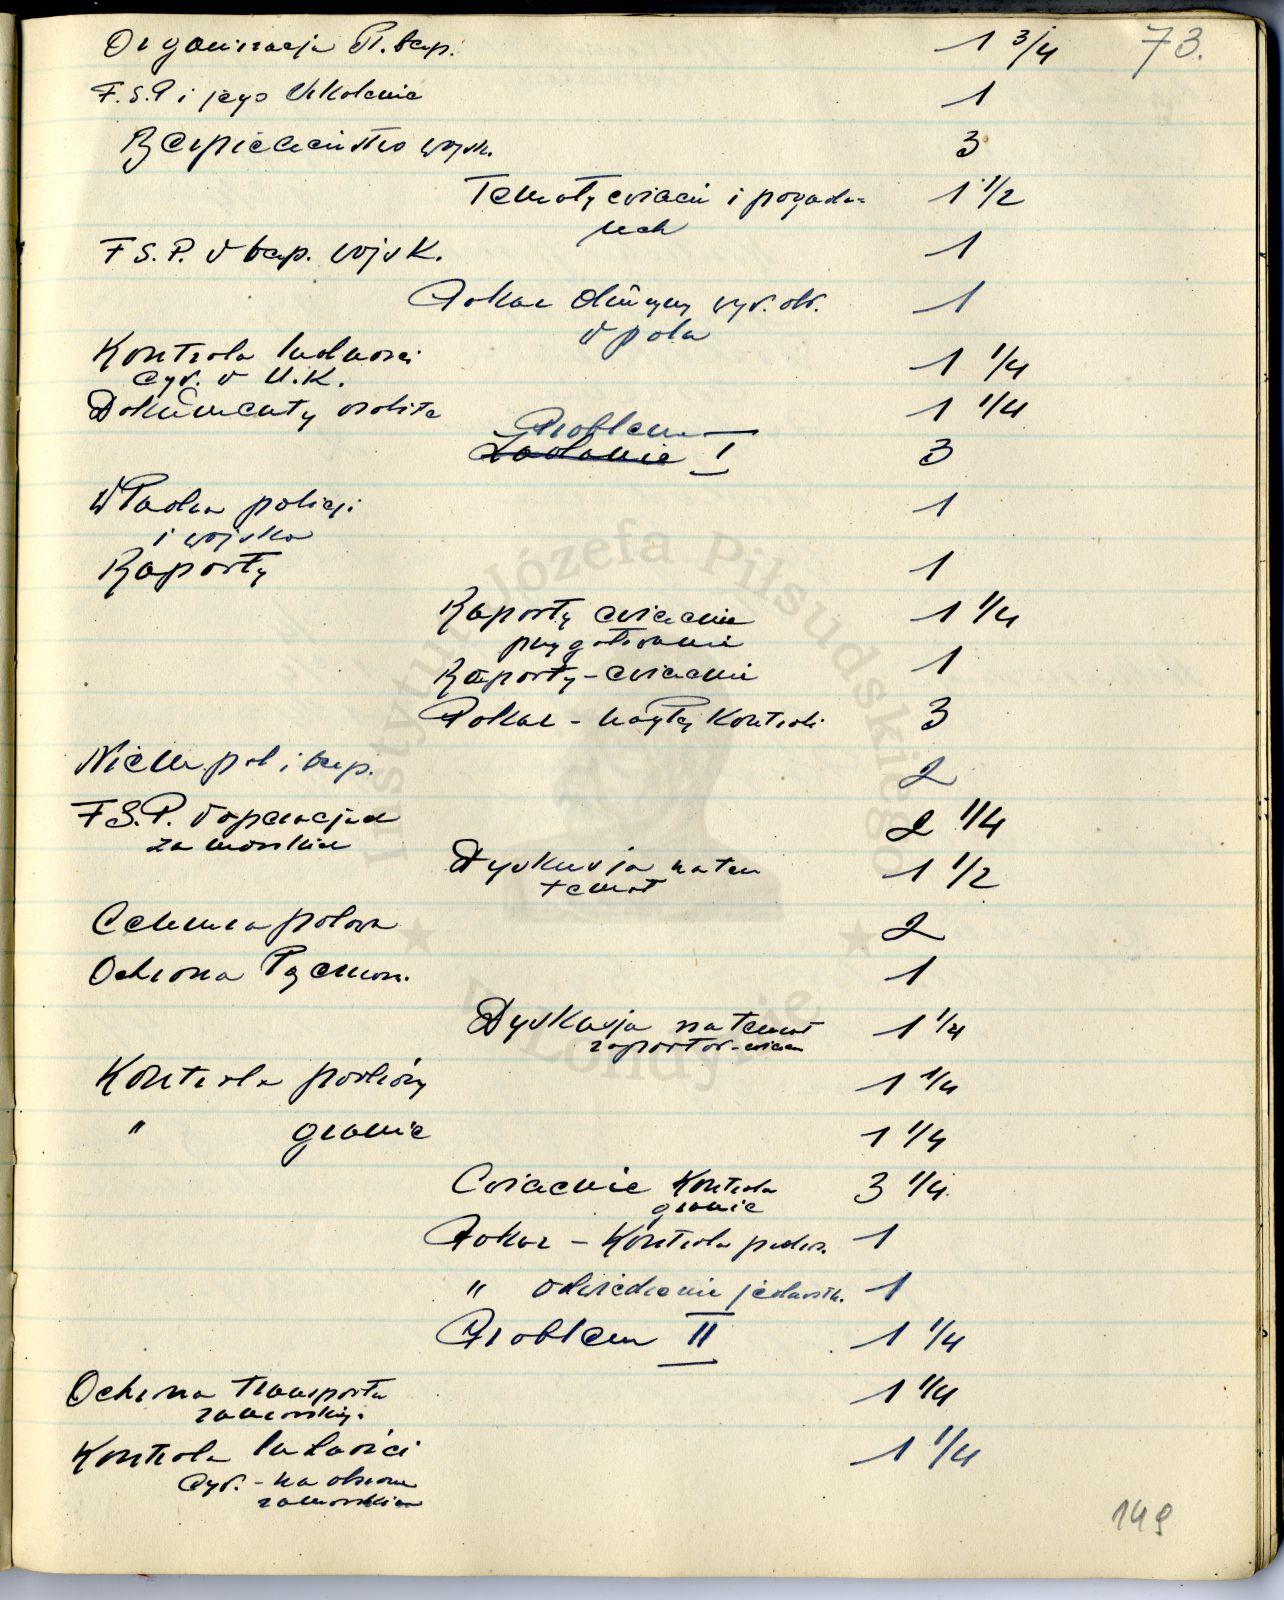 Organizacja Pl. bezp. 1 3/4 73.
F.S.P i jego szkolenie 1
Bezpieczeństwo wojsk. 3
Tematy ćwiczeń i pogadan= 1 1/2
nech
F.S.P. w bezp. wojsk. 1
Pokaz drużyny wyw. obr. 1
w polu
Kontrola ludności 1 1/4
cyw. w U.K.
Dokumenty osobiste 1 1/4
Problem
Zadanie I 3
Władza policji 1
i wojska
Raporty 1
Raporty ćwiczenie 1 1/4
przygotowanie
Raporty - ćwiczenie 1
Pokaz - wozy kontroli 3
Niem. pol. i bezp. 2
F.S.P. w operacjach 2 1/4
zamorskich
Dyskusja na ten 1 1/2
temat
Cenzura polowa 2
Ochrona 1
Dyskusja na temat 1 1/4
raportów - ćwiczeń
Kontrola podróży 1 1/4
" granic 1 1/4
Ćwiczenie Kontrola 3 1/4
granic
Pokaz - Kontrola podróż. 1
" odwiedzenie jednostk. 1
Problem II 1 1/4
Ochrona transportu 1 1/4
zamorskiego
Kontrola ludności 1 1/4
cyw. - na obszarze
zamorskim
149
Instytut Józefa Piłsudskiego
w Londynie